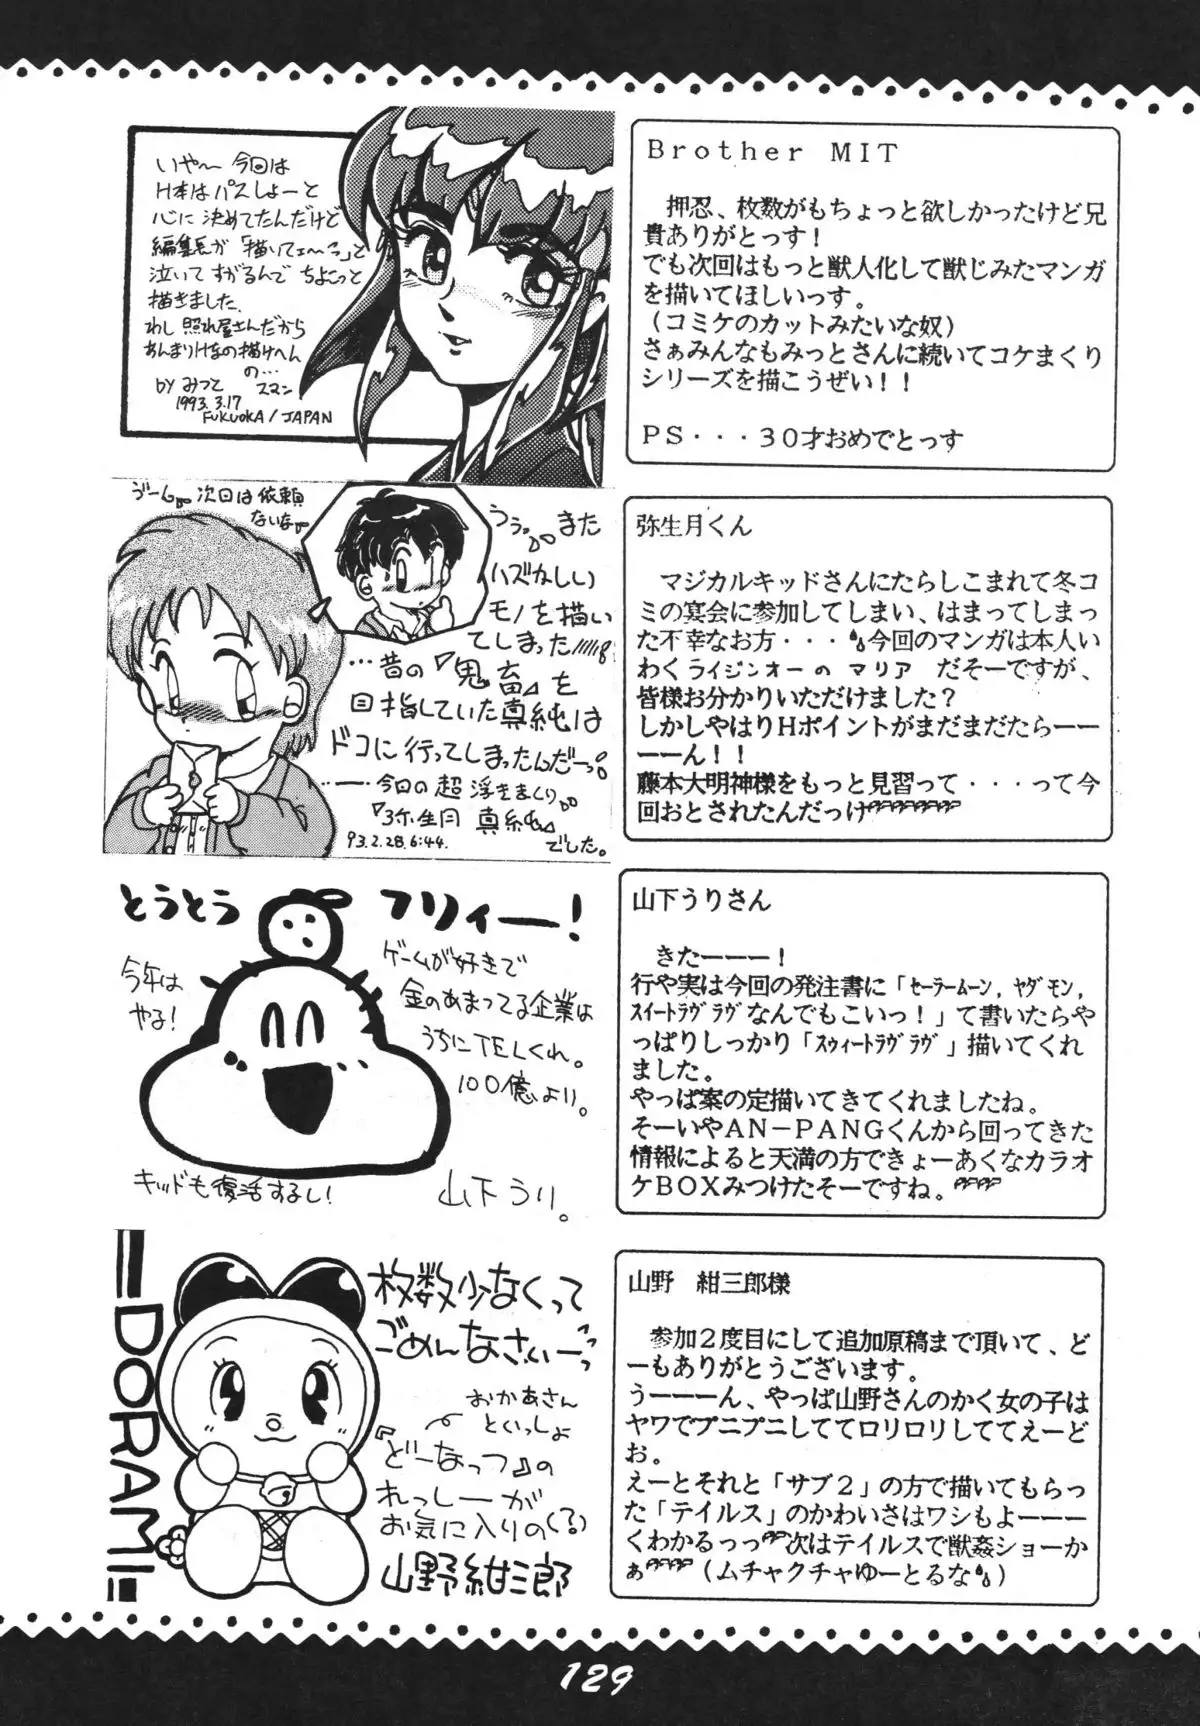 いや〜 今回は
H本はパスしよーと
心に決めてたんだけど
編集長が「描いてェ〜っ」と
泣いてすがるんで ちょこっと
描きました.
わし 照れ屋さんだから
あんまりHなの描けへん
の… スマン
by みっと
1993.3.17
FUKUOKA/JAPAN
Brother MIT
押忍、枚数がもちょっと欲しかったけど兄
貴ありがとっす！
でも次回はもっと獣人化して獣じみたマンガ
を描いてほしいっす。
（コミケのカットみたいな奴）
さぁみんなもみっとさんに続いてコケまくり
シリーズを描こうぜい！！
PS・・・30才おめでとっす
次回は依頼
ないな
うぅ また
ハズかしい
モノを描い
てしまった
…昔の『鬼畜』を
目指していた真純は
ドコに行ってしまったんだーっ
今回の超浮きまくり
『弥生月 真純』
でした。
93.2.28.6:44.
弥生月くん
マジカルキッドさんにたらしこまれて冬コ
ミの宴会に参加してしまい、はまってしまっ
た不幸なお方・・・今回のマンガは本人い
わくライジンオーの マリア だそーですが、
皆様お分かりいただけました？
しかしやはりHポイントがまだまだたらーー
ーーん！！
藤本大明神様をもっと見習って・・・って今
回おとされたんだっけ
とうとう フリィー！
今年は
やる！
ゲームが好きで
金のあまってる企業は
うちにTELくれ。
100億より。
キッドも復活するし！
山下うり。
山下うりさん
きたーーー！
行や実は今回の発注書に「ｾｰﾗｰﾑｰﾝ，ﾔﾀﾞﾓﾝ，
ｽｲｰﾄﾗｳﾞﾗｳﾞなんでもこいっ！」て書いたらや
っぱりしっかり「ｽｩｨｰﾄﾗｳﾞﾗｳﾞ」描いてくれ
ました。
やっぱ案の定描いてきてくれましたね。
そーいやAN－PANGくんから回ってきた
情報によると天満の方できょーあくなカラオ
ケBOXみつけたそーですね。
DORAMI
枚数少なくって
ごめんなさいーっ
おかあさん
といっしょ
『どーなっつ』の
れっしーが
お気に入りの(る)
山野紺三郎
山野 紺三郎様
参加２度目にして追加原稿まで頂いて、ど
ーもありがとうございます。
うーーーん、やっぱ山野さんのかく女の子は
ヤワでプニプニしててロリロリしててえーど
お。
えーとそれと「サブ２」の方で描いてもらっ
た「テイルス」のかわいさはワシもよーーー
くわかるっっ次はテイルスで獣姦ショーか
ぁ（ムチャクチャゆーとるな）
129